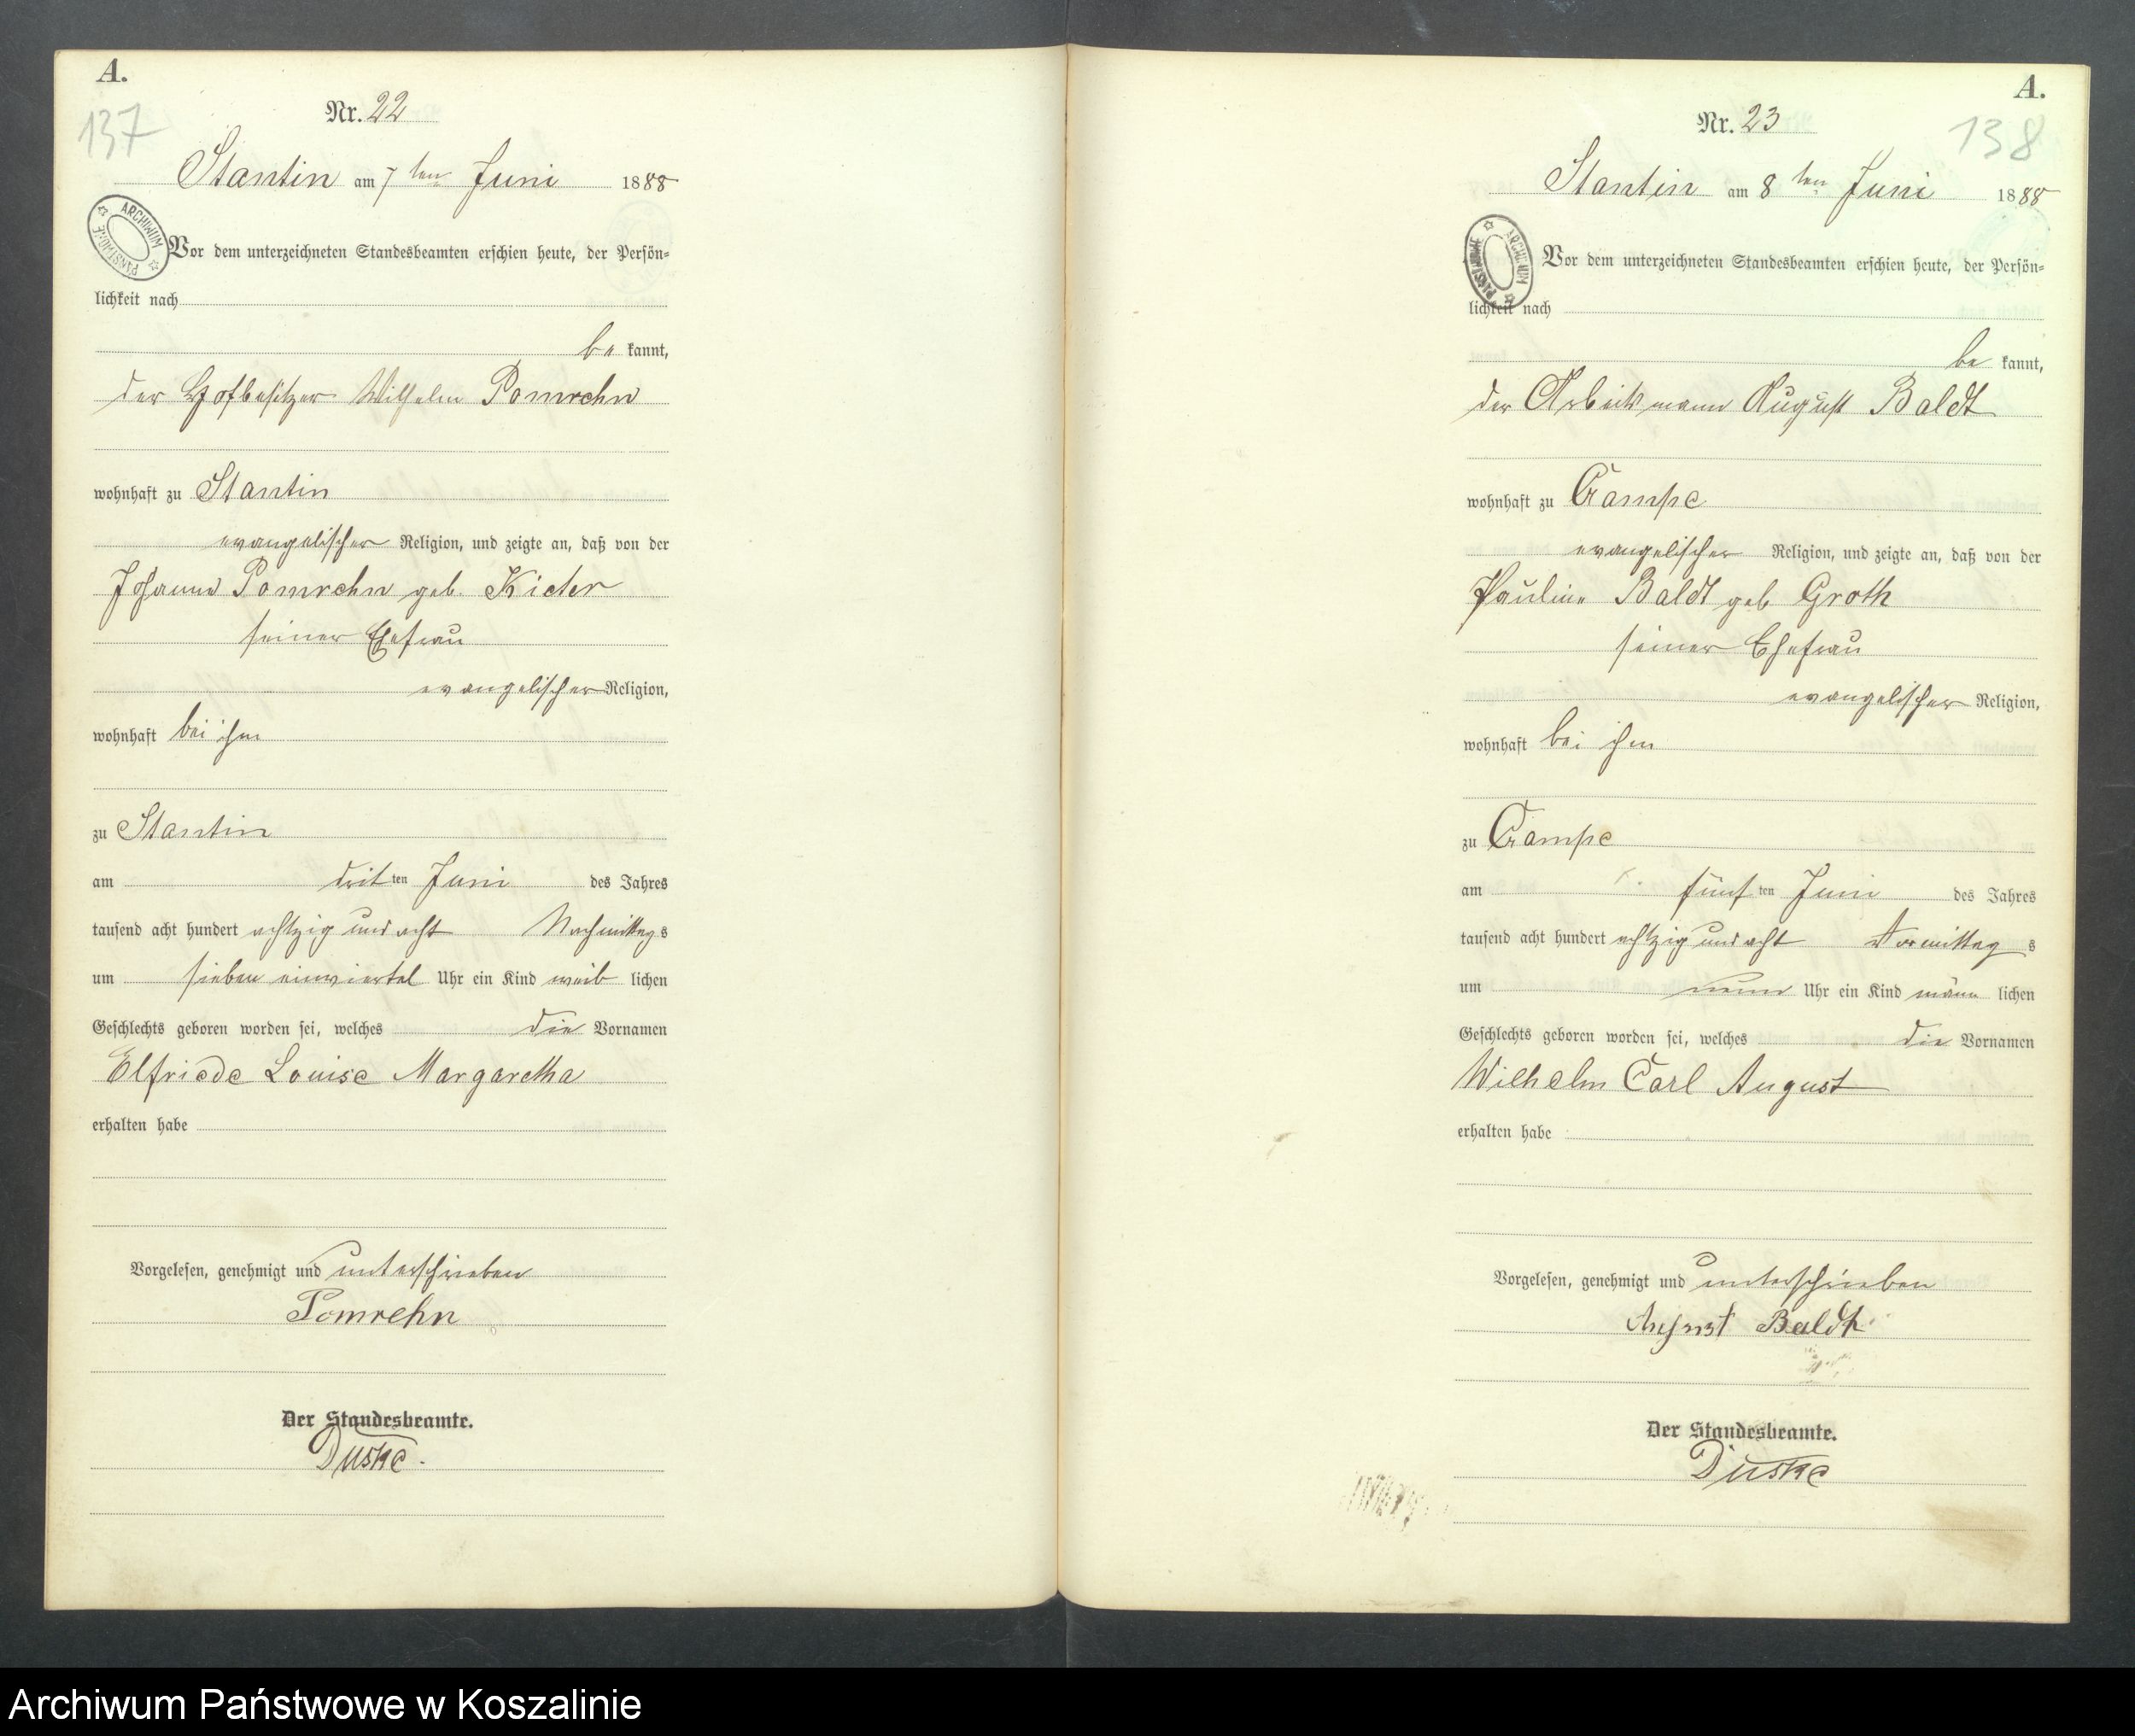 A.
137
Nr. 22
Stantin am 7ten Juni 1888
ARCHIWUM PAŃSTWOWE
Vor dem unterzeichneten Standesbeamten erschien heute, der Persön-
lichkeit nach
be kannt,
der Hofbesitzer Wilhelm Pomrehn
wohnhaft zu Stantin
evangelischer Religion, und zeigte an, daß von der
Johanne Pomrehn geb.
seiner Ehefrau
evangelischer Religion,
wohnhaft bei ihm
zu Stantin
am dritten Juni des Jahres
tausend acht hundert achtzig und acht Nachmittags
um sieben einviertel Uhr ein Kind weib lichen
Geschlechts geboren worden sei, welches die Vornamen
Elfriede Louise Margaretha
erhalten habe
Vorgelesen, genehmigt und unterschrieben
Pomrehn
Der Standesbeamte.
Duske.
A.
138
Nr. 23
Stantin am 8ten Juni 1888
ARCHIWUM PAŃSTWOWE
Vor dem unterzeichneten Standesbeamten erschien heute, der Persön-
lichkeit nach
be kannt,
der Arbeitsmann August Baldt
wohnhaft zu Gampe
evangelischer Religion, und zeigte an, daß von der
Pauline Baldt geb Groth
seiner Ehefrau
evangelischer Religion,
wohnhaft bei ihm
zu Gampe
am fünften Juni des Jahres
tausend acht hundert achtzig und acht Vormittag s
um neun Uhr ein Kind männ lichen
Geschlechts geboren worden sei, welches die Vornamen
Wilhelm Carl August
erhalten habe
Vorgelesen, genehmigt und unterschrieben
August Baldt
Der Standesbeamte.
Duske
Archiwum Państwowe w Koszalinie